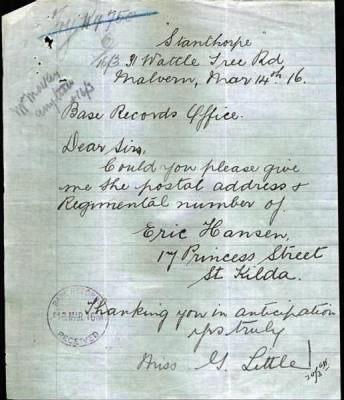 "Stanthorpe"
16/3 31 Wattle Tree Rd
Malvern, Mar 14th 16.
Base Records Office.
Dear Sir,
Could you please give
me the postal address &
Regimental number of
Eric Hansen,
17 Princess Street
St Kilda.
BASE RECORDS
16 MAR 16
RECEIVED
Thanking you in anticipation
yrs truly
Miss G. Little